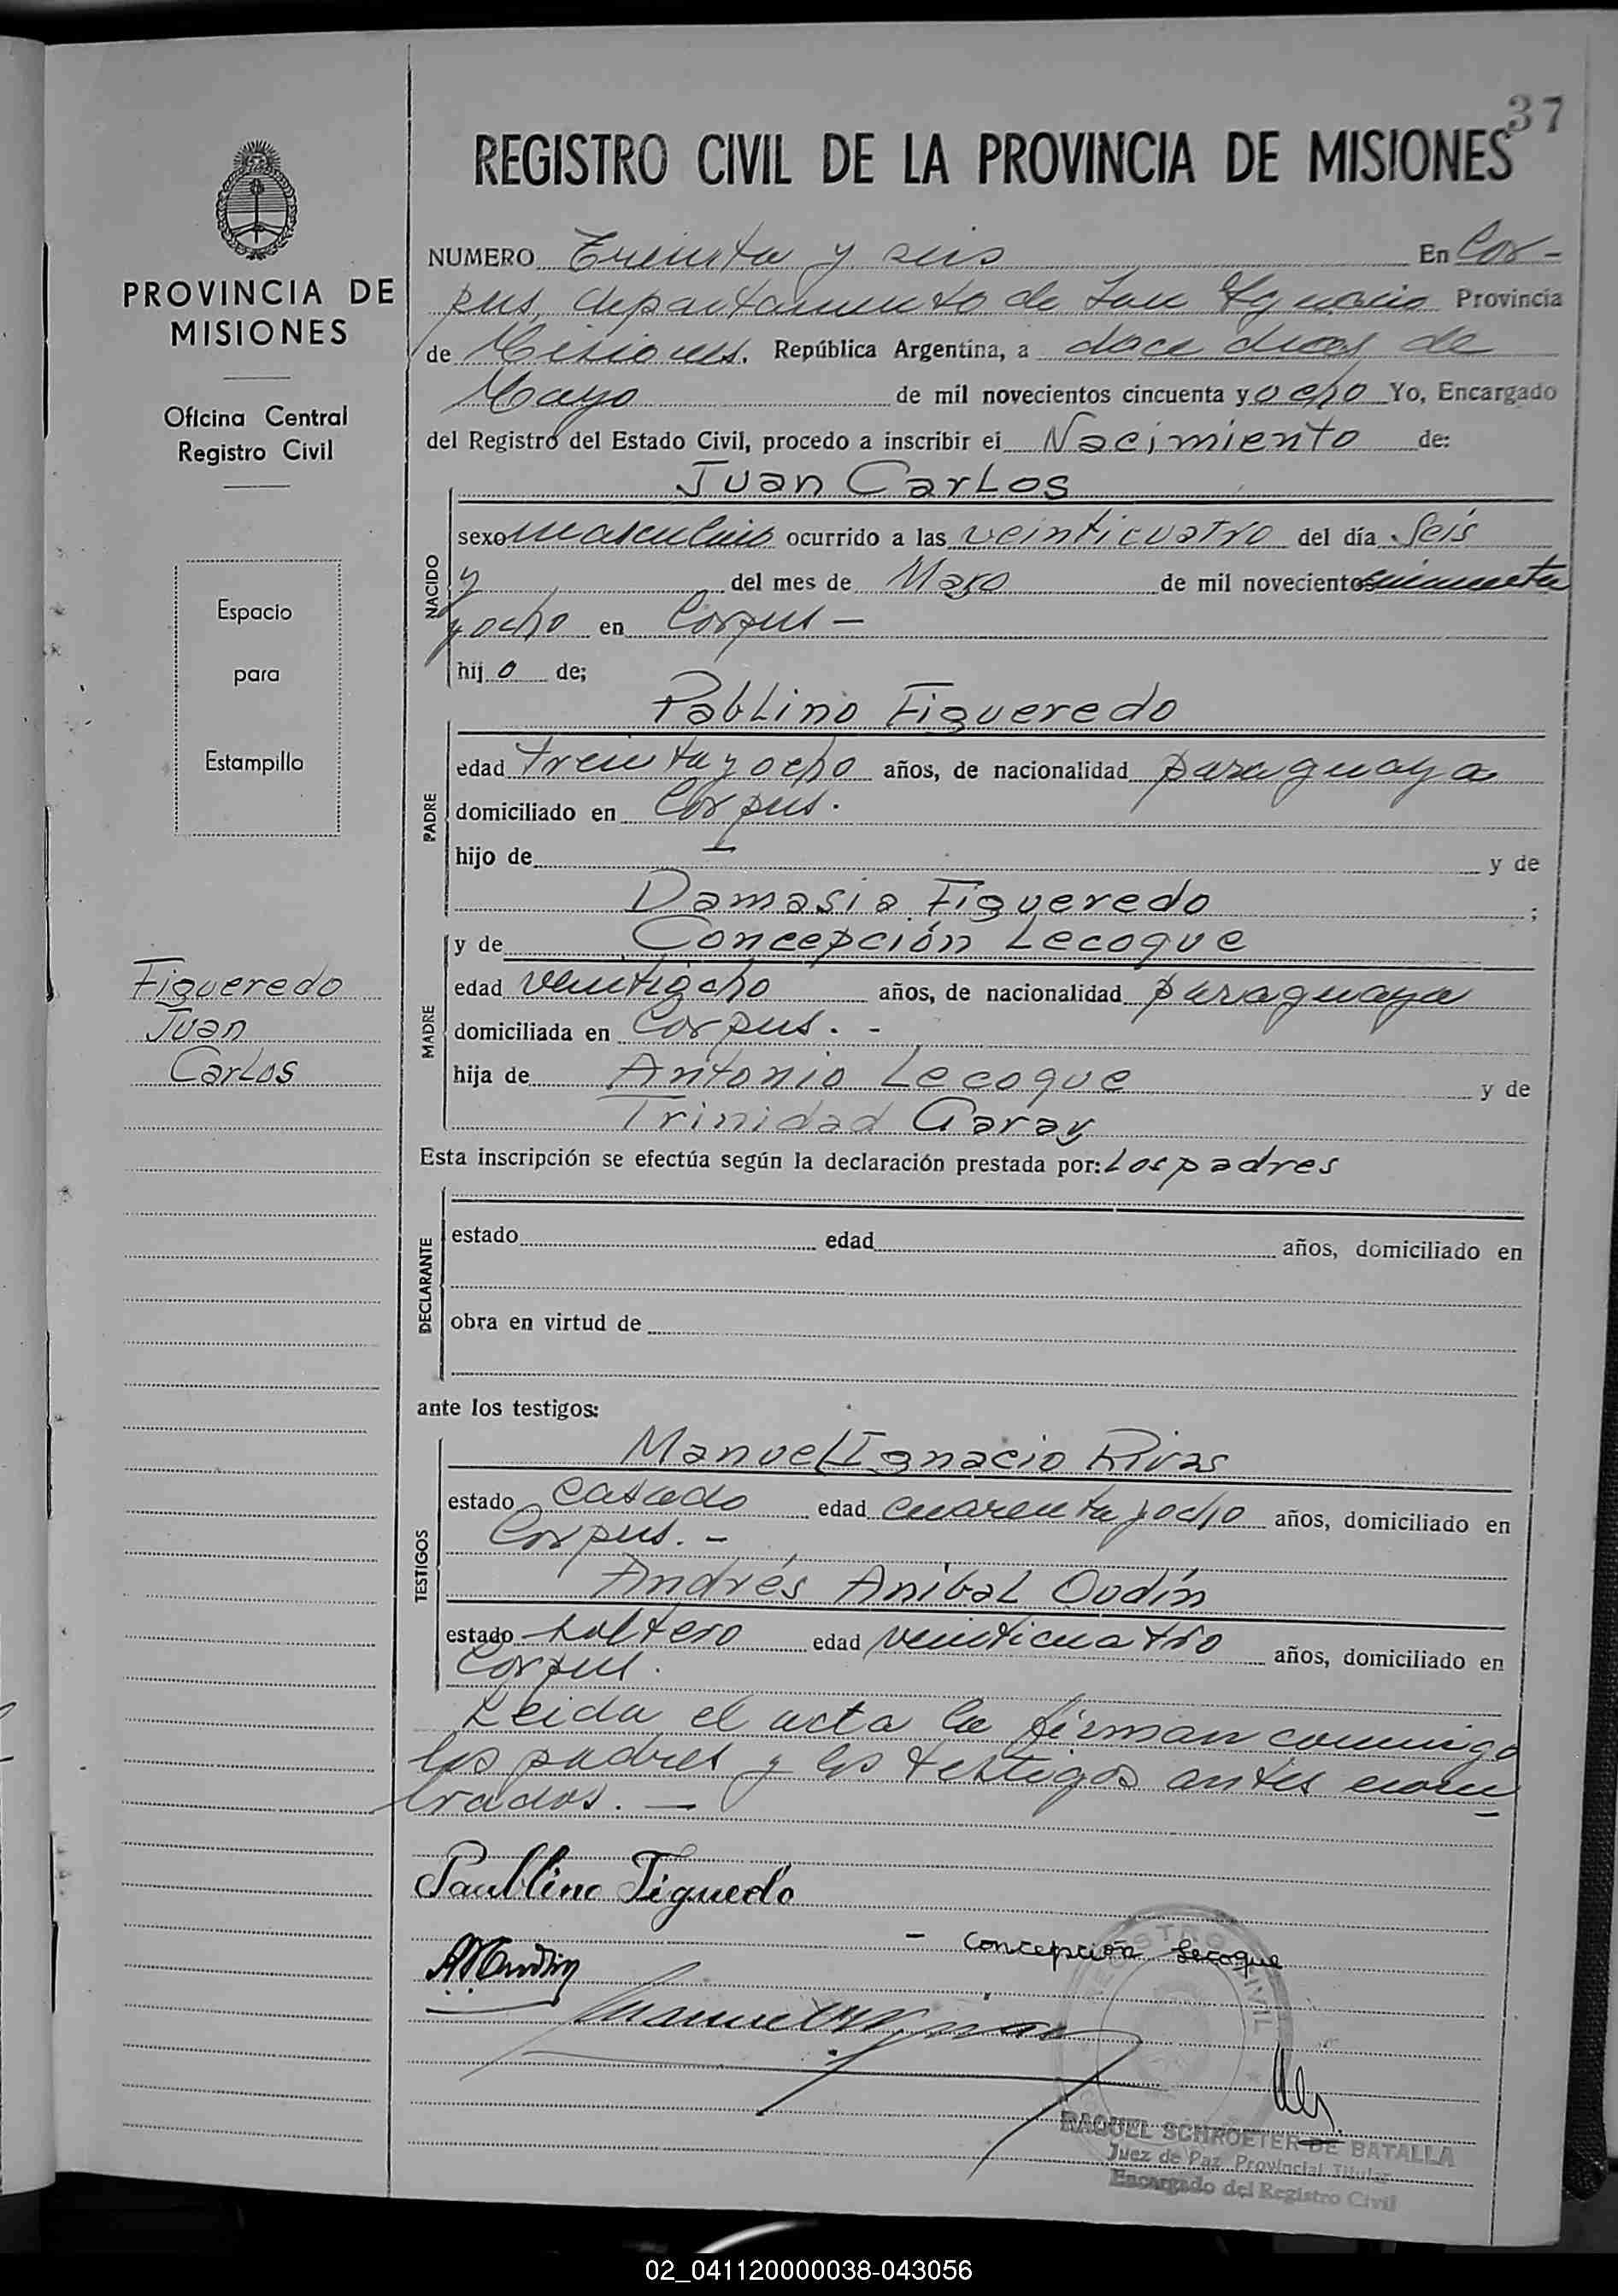 37
REGISTRO CIVIL DE LA PROVINCIA DE MISIONES
PROVINCIA DE
MISIONES
Oficina Central
Registro Civil
Espacio
para
Estampillo
Figueredo
Juan
Carlos
NUMERO Treinta y seis En Cor-
pus, departamento de San Ignacio Provincia
de Misiones. República Argentina, a doce dias de
Mayo de mil novecientos cincuenta y ocho Yo, Encargado
del Registro del Estado Civil, procedo a inscribir el Nacimiento de:
Juan Carlos
NACIDO
sexo masculino ocurrido a las veinticuatro del día Seis
y del mes de Mayo de mil novecientos cincuenta
y ocho en Corpus -
hij o de;
Pablino Figueredo
PADRE
edad treinta y ocho años, de nacionalidad paraguaya
domiciliado en Corpus.
hijo de — y de
Damasia Figueredo ;
y de Concepción Lecoque
MADRE
edad veintiocho años, de nacionalidad paraguaya
domiciliada en Corpus. -
hija de Antonio Lecoque y de
Trinidad Garay
Esta inscripción se efectúa según la declaración prestada por: Los padres
DECLARANTE
estado edad años, domiciliado en
obra en virtud de
ante los testigos:
TESTIGOS
Manuel Ignacio Rivas
estado casado edad cuarenta y ocho años, domiciliado en
Corpus. -
Andrés Aníbal Oudín
estado soltero edad veinticuatro años, domiciliado en
Corpus.
Leida el acta la firman conmigo
los padres y los testigos antes nom
brados. —
Paublino Figuedo
- Concepción Lecoque
REGISTRO CIVIL
RAQUEL SCHROETER DE BATALLA
Juez de Paz Provincial Titular
Encargado del Registro Civil
02_041120000038-043056